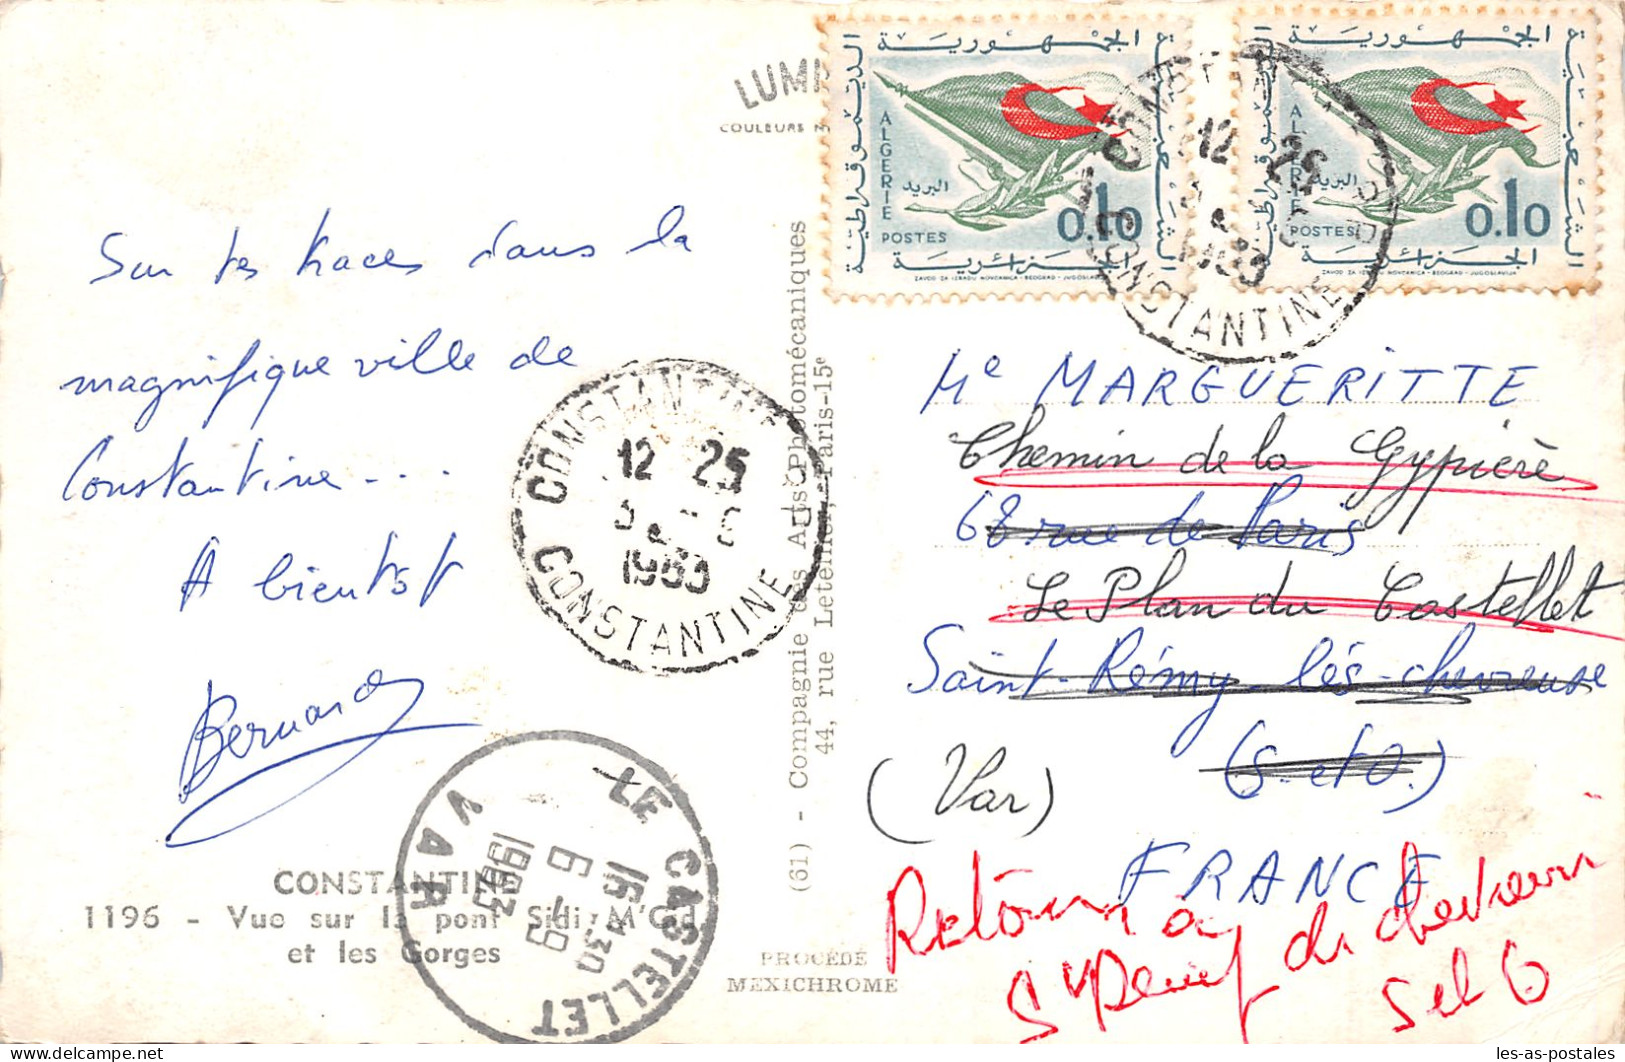 LUMI
COULEURS
Sur tes traces dans la
magnifique ville de
Constantine...
A bientôt
Bernard
CONSTANTINE
1196 - Vue sur le pont Sidi M'Cid
et les Gorges
LE CASTELLET
VAR
16 H30
6 - 9
1963
CONSTANTINE
12 25
1963
CONSTANTINE
(61) - Compagnie des Arts Photomécaniques
44, rue Letellier, Paris-15e
PROCÉDÉ
MEXICHROME
الجمهورية
الديمقراطية
الشعبية
الجزائرية
ALGERIE
البريد
POSTES
0.10
ZAVOD ZA IZRADU NOVCANICA - BEOGRAD - JUGOSLAVIJA
الجمهورية
الديمقراطية
الشعبية
الجزائرية
ALGERIE
البريد
POSTES
0.10
ZAVOD ZA IZRADU NOVCANICA - BEOGRAD - JUGOSLAVIJA
12 25
1963
CONSTANTINE
Me MARGUERITTE
Chemin de la Gypière
68 rue de Paris
Le Plan du Castellet
Saint-Rémy-lés-chevreuse
(S-et-O.)
(Var)
FRANCE
Retour a
St Remy de chevreuse
S et O
les-as-postales.delcampe.net